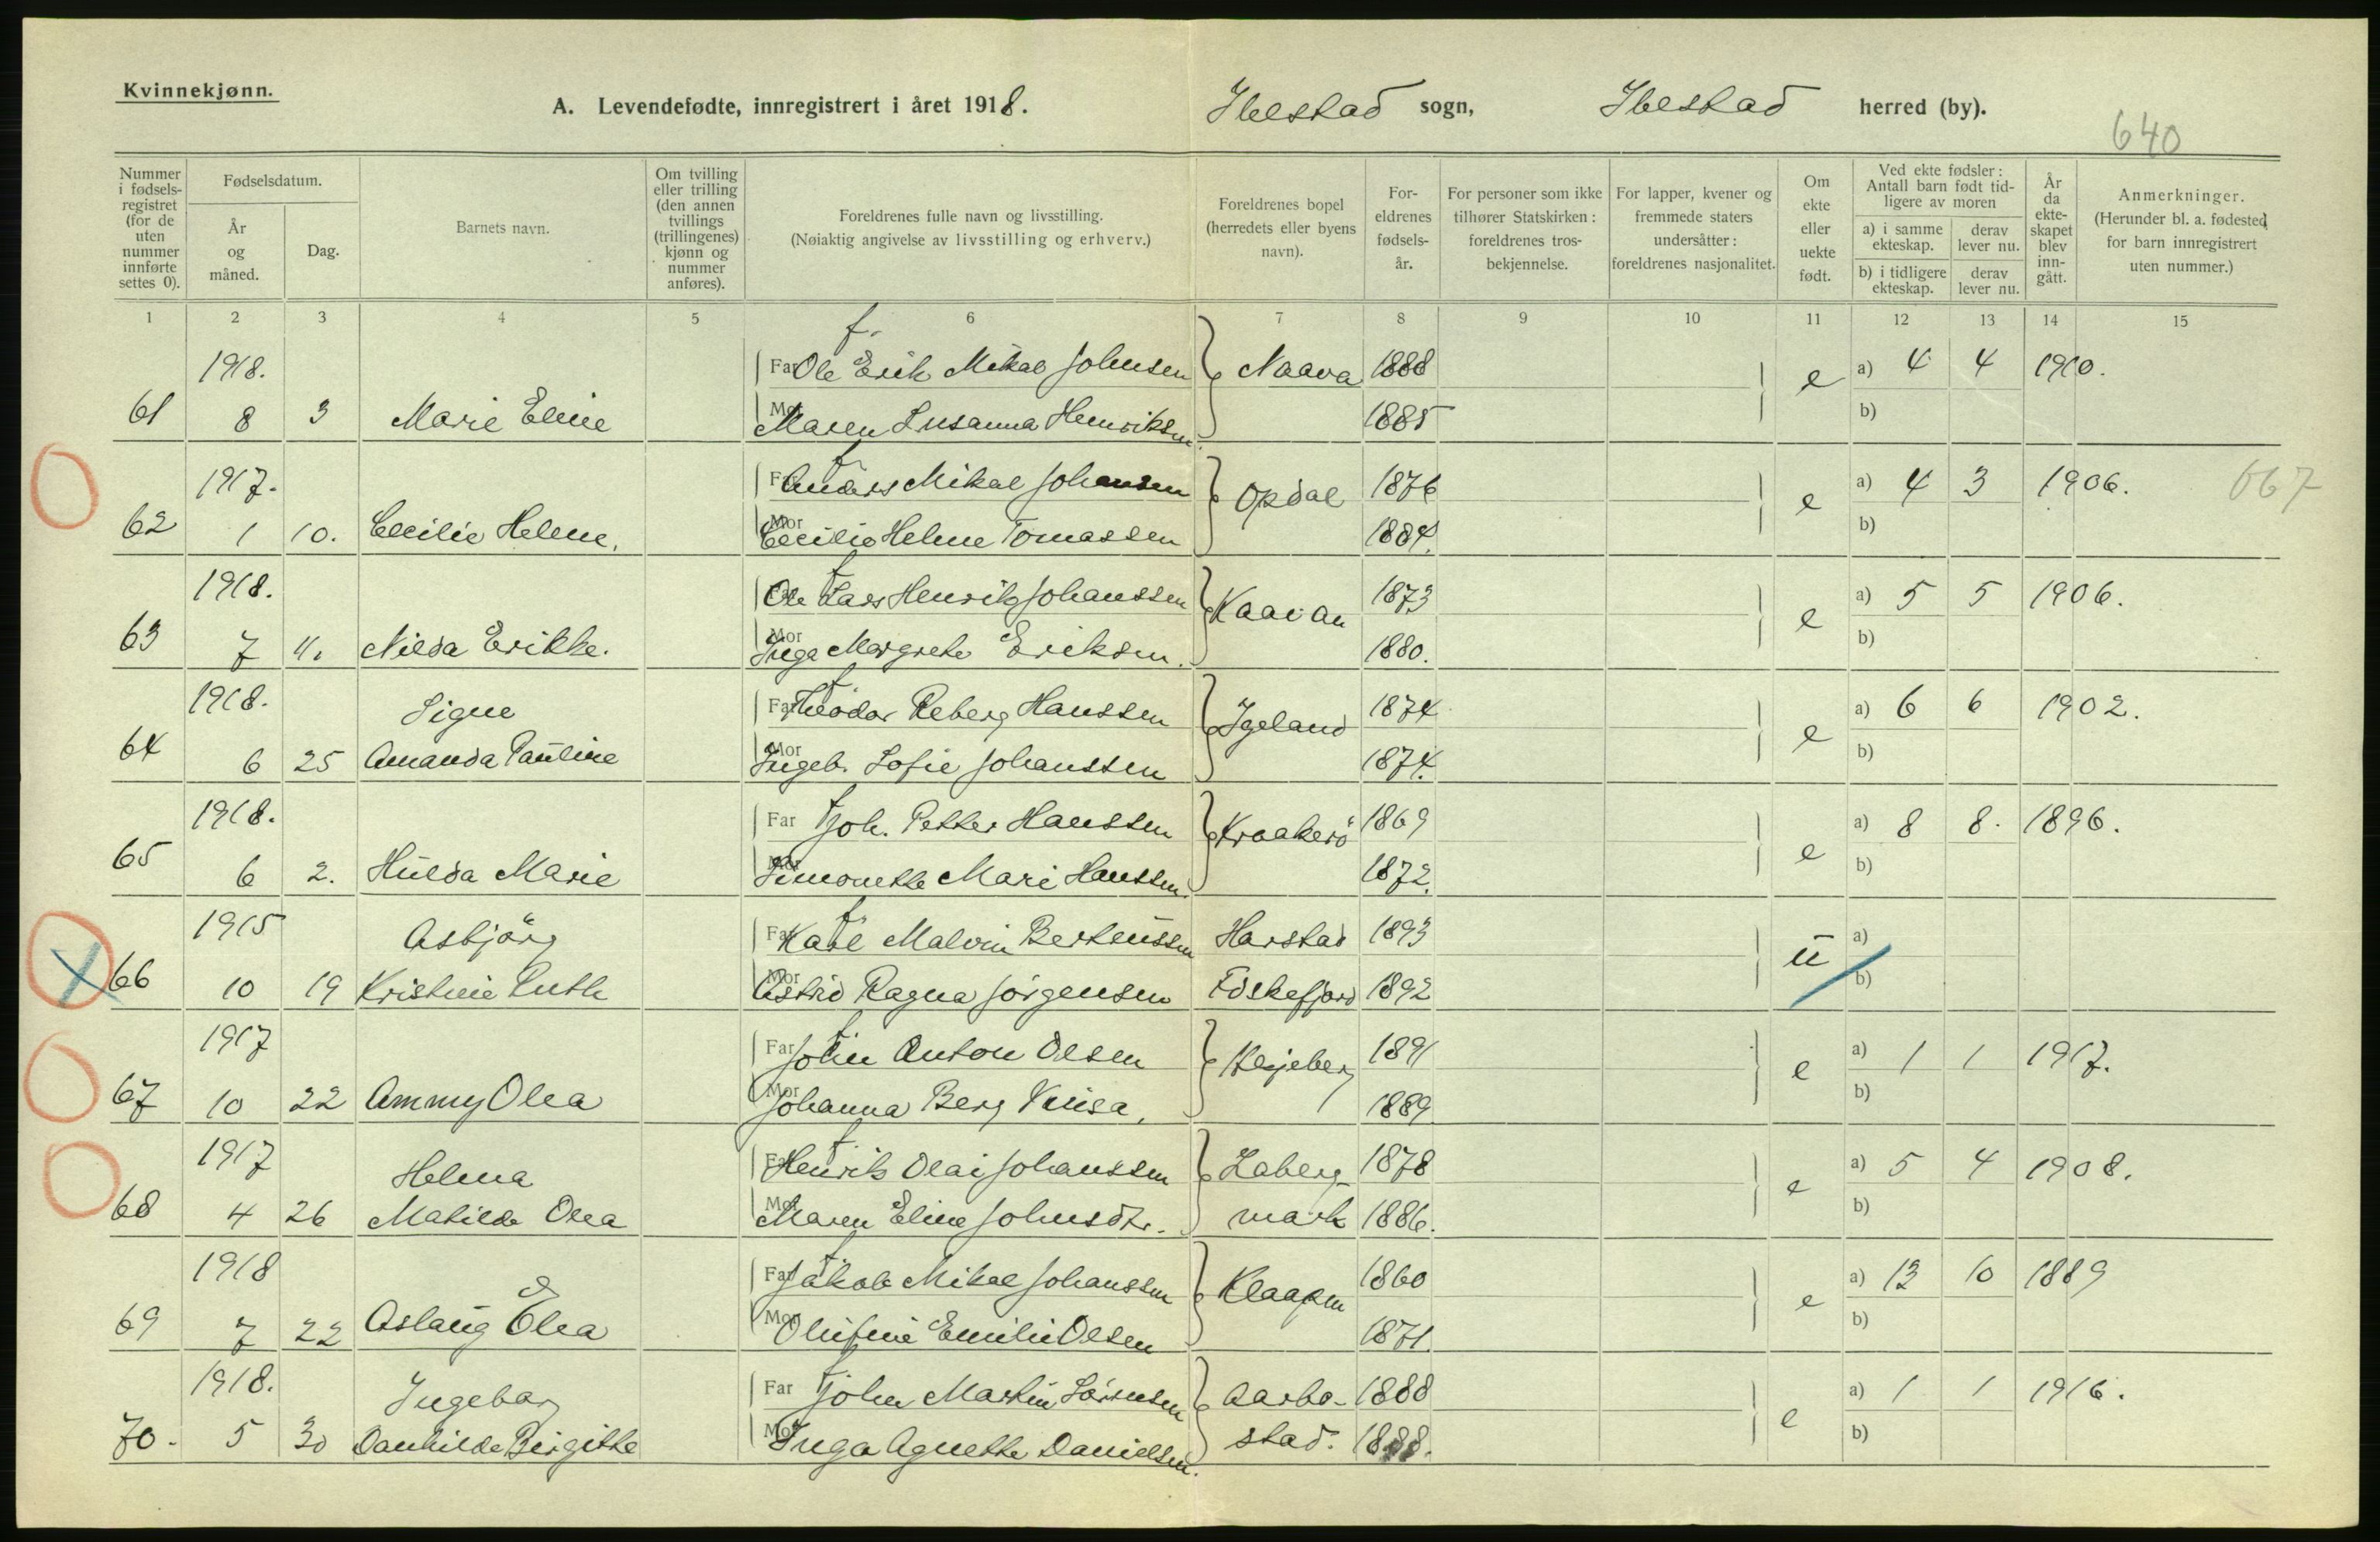 Kvinnekjønn.
A. Levendefødte, innregistrert i året 1918. Ibestad sogn, Ibestad herred (by).
640
Nummer i fødselsregistret (for de uten nummer innførte settes 0).
Fødselsdatum.
År og måned.
Dag.
Barnets navn.
Om tvilling eller trilling (den annen tvillings (trillingenes) kjønn og nummer anføres).
Foreldrenes fulle navn og livsstilling.
(Nøiaktig angivelse av livsstilling og erhverv.)
Foreldrenes bopel (herredets eller byens navn).
Foreldrenes fødselsår.
For personer som ikke tilhører Statskirken: foreldrenes trosbekjennelse.
For lapper, kvener og fremmede staters undersåtter: foreldrenes nasjonalitet.
Om ekte eller uekte født.
Ved ekte fødsler: Antall barn født tidligere av moren
a) i samme ekteskap.
derav lever nu.
b) i tidligere ekteskap.
derav lever nu.
År da ekteskapet blev inngått.
Anmerkninger.
(Herunder bl. a. fødested for barn innregistrert uten nummer.)
1 2 3 4 5 6 7 8 9 10 11 12 13 14 15
f.
1918. Far Ole Erik Mikal Johnsen Naava 1888 e a) 4 4 1910.
61 8 3 Marie Eline Mor Maren Susanna Henriksen. 1885 b)
1917. Far Anders Mikal Johansen Opdal 1876 e a) 4 3 1906. 667
62 1 10. Cecilie Helene. Mor Cecilie Helene Tomassen 1884. b)
1918. Far Ole Lars Henrik Johanssen Kaavan 1873 e a) 5 5 1906.
63 7 11. Nilda Erikke. Mor Inga Margrete Eriksen. 1880. b)
1918. Signe Far Theodor Reberg Hanssen Igeland 1874 e a) 6 6 1902.
64 6 25 Amanda Pauline Mor Ingeb. Sofie Johanssen 1874. b)
1918. Far Joh. Petter Hanssen Kraakerö 1869 e a) 8 8. 1896.
65 6 2. Hulda Marie Mor Simonette Mari Hanssen. 1872. b)
1915 Asbjörg Far Karl Malvin Berteussen Harstad 1893 u a)
66 10 19 Kristine Ruth Mor Astrid Ragna Jörgensen 1892 b)
1917 Far John Anton Olsen 1891 e a) 1 1 1917.
67 10 22 Ammy Olea Mor Johanna Berg 1889 b)
1917 Helma Far Henrik Olai Johanssen Laberg- 1878 e a) 5 4 1908.
68 4 26 Matilde Olea Mor Maren Eline Johnsdtr. mark 1886. b)
1918 Far Jakob Mikal Johanssen Klaapen 1860 e a) 13 10 1889
69 7 22 Aslaug Olea Mor Olufine Emilie Olsen 1871. b)
1918. Ingeborg Far John Martin Sörensen Aarbo- 1888 e a) 1 1 1916.
70. 5 30 Danhilde Birgitte Mor Inga Agnette Danielsen. stad. 1888. b)